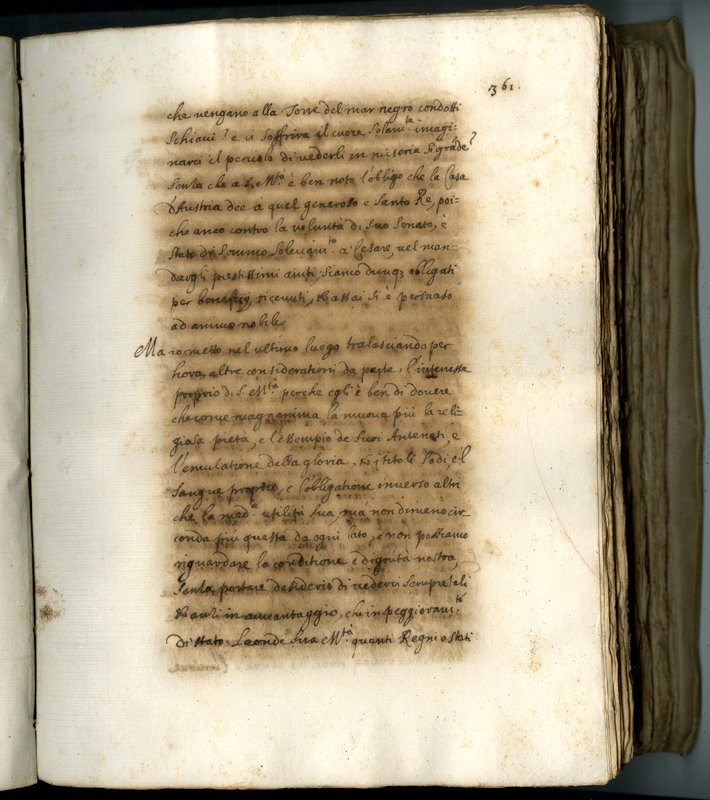 361.
che uengano alla Torre del mar negro condotti
Schiaui? e ci soffrirà il cuore Solam.te imagi=
narci il pericolo di uederli in miseria si grāde?
Scusa che a S. M.tà è ben noto l'obligo che la Casa
d'Austria dee à quel generoso e Santo Re, poi=
che anco contro la uoluntà di suo Senato, è
stato di sommo a Cesare, nel man=
dargli prestissimi aiuti, siamo dunq; obligati
per beneficij riceuuti, et assai si è persuaso
ad animo nobile
Ma io metto nel ultimo luogo tralasciando per
hora altre considerationi da parte, l'interesse
proprio di S. M.tà perche egli è ben di douere
che come magnanima la muoua più la reli=
giosa pietà, e l'essempio de suoi Antenati, e
l'emulatione della gloria, et i titoli
sangue proprio, e l'obligatione inuerso altri
che la med.a utilità sua, ma non dimeno cir=
conda più questa da ogni lato, e non possiamo
riguardare la conditione e dignità nostra,
senza portare desiderio di uederci sempre
in auuantaggio, che in peggioram.to
di stato. Laonde sua M.tà quanti Regni o stati